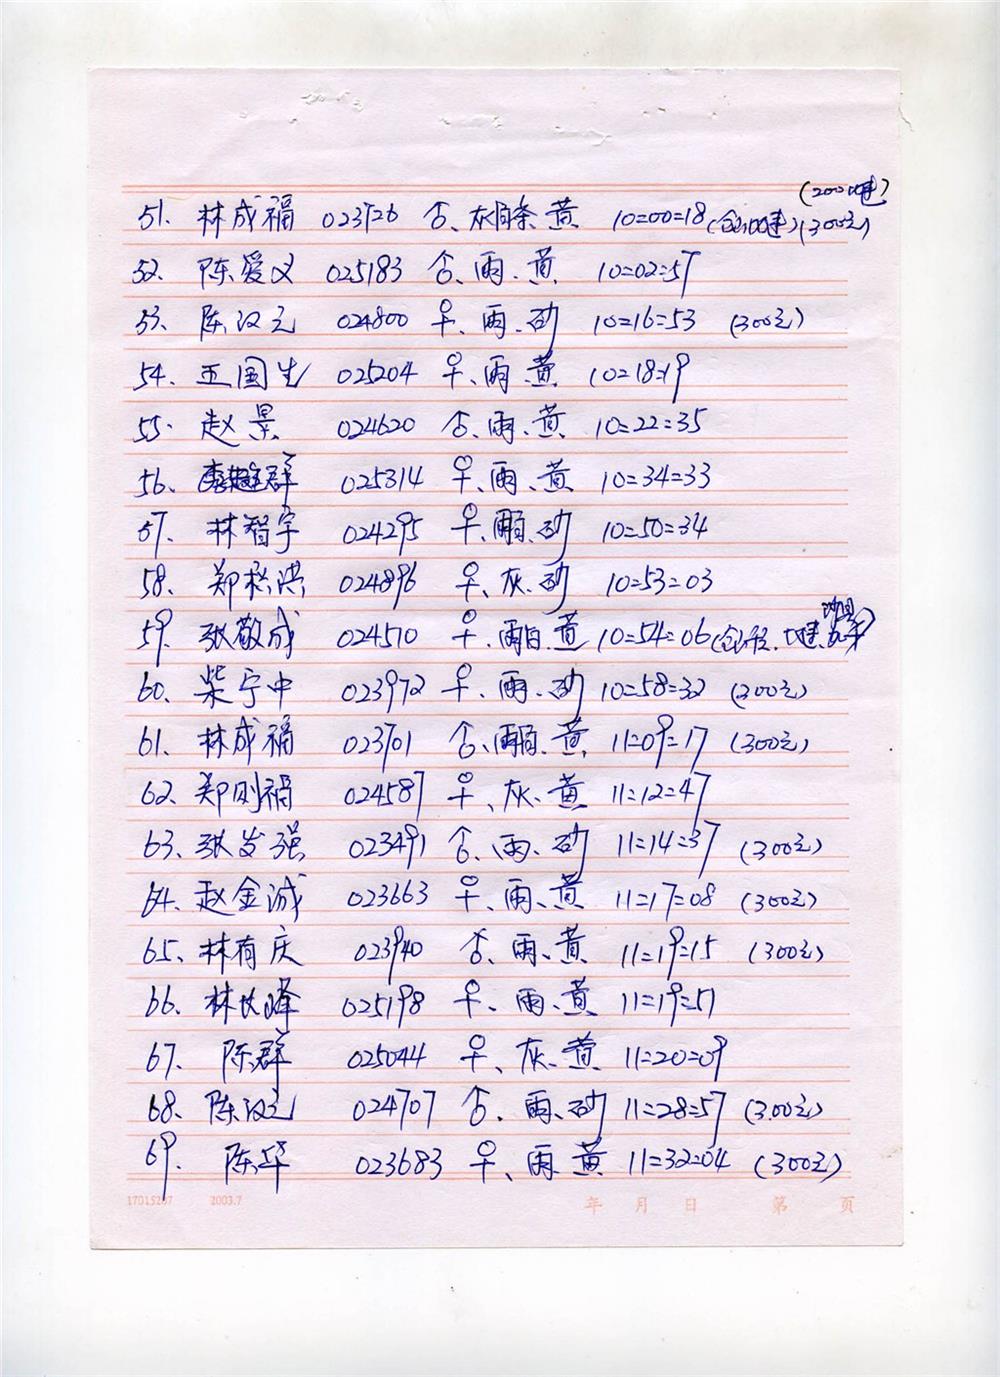 (200
51. 林成福 023726 ♂、灰 条 黄 10=00=18 (300元)
52. 陈爱义 025183 ♂、雨、黄 10=02=57
53、陈汉元 024800 ♀、雨、砂 10=16=53 (300元)
54、王国生 025204 ♀、雨、黄 10=18=19
55. 赵景 024620 ♂、雨、黄 10=22=35
56、群 025314 ♀、雨、黄 10=34=33
57、林智宇 024295 ♀、砂 10=50=34
58、郑松洪 024896 ♀、灰、砂 10=53=03
59、张敬成 024570 ♀、雨白、黄 10=54=06
60、柴宁中 023972 ♀、雨、砂 10=58=32 (300元)
61、林成福 023701 ♂、黄 11=09=17 (300元)
62、郑则福 024587 ♀、灰、黄 11=12=47
63、张发强 023491 ♂、雨、砂 11=14=37 (300元)
64、赵金诚 023663 ♀、雨、黄 11=17=08 (300元)
65、林有庆 023940 ♂、雨、黄 11=19=15 (300元)
66、林 峰 025198 ♀、雨、黄 11=19=51
67、陈群 025044 ♀、灰、黄 11=20=09
68、陈汉元 024707 ♂、雨、砂 11=28=57 (300元)
69、陈华 023683 ♀、雨、黄 11=32=04 (300元)
17015207 2003.7 年 月 日 第 页